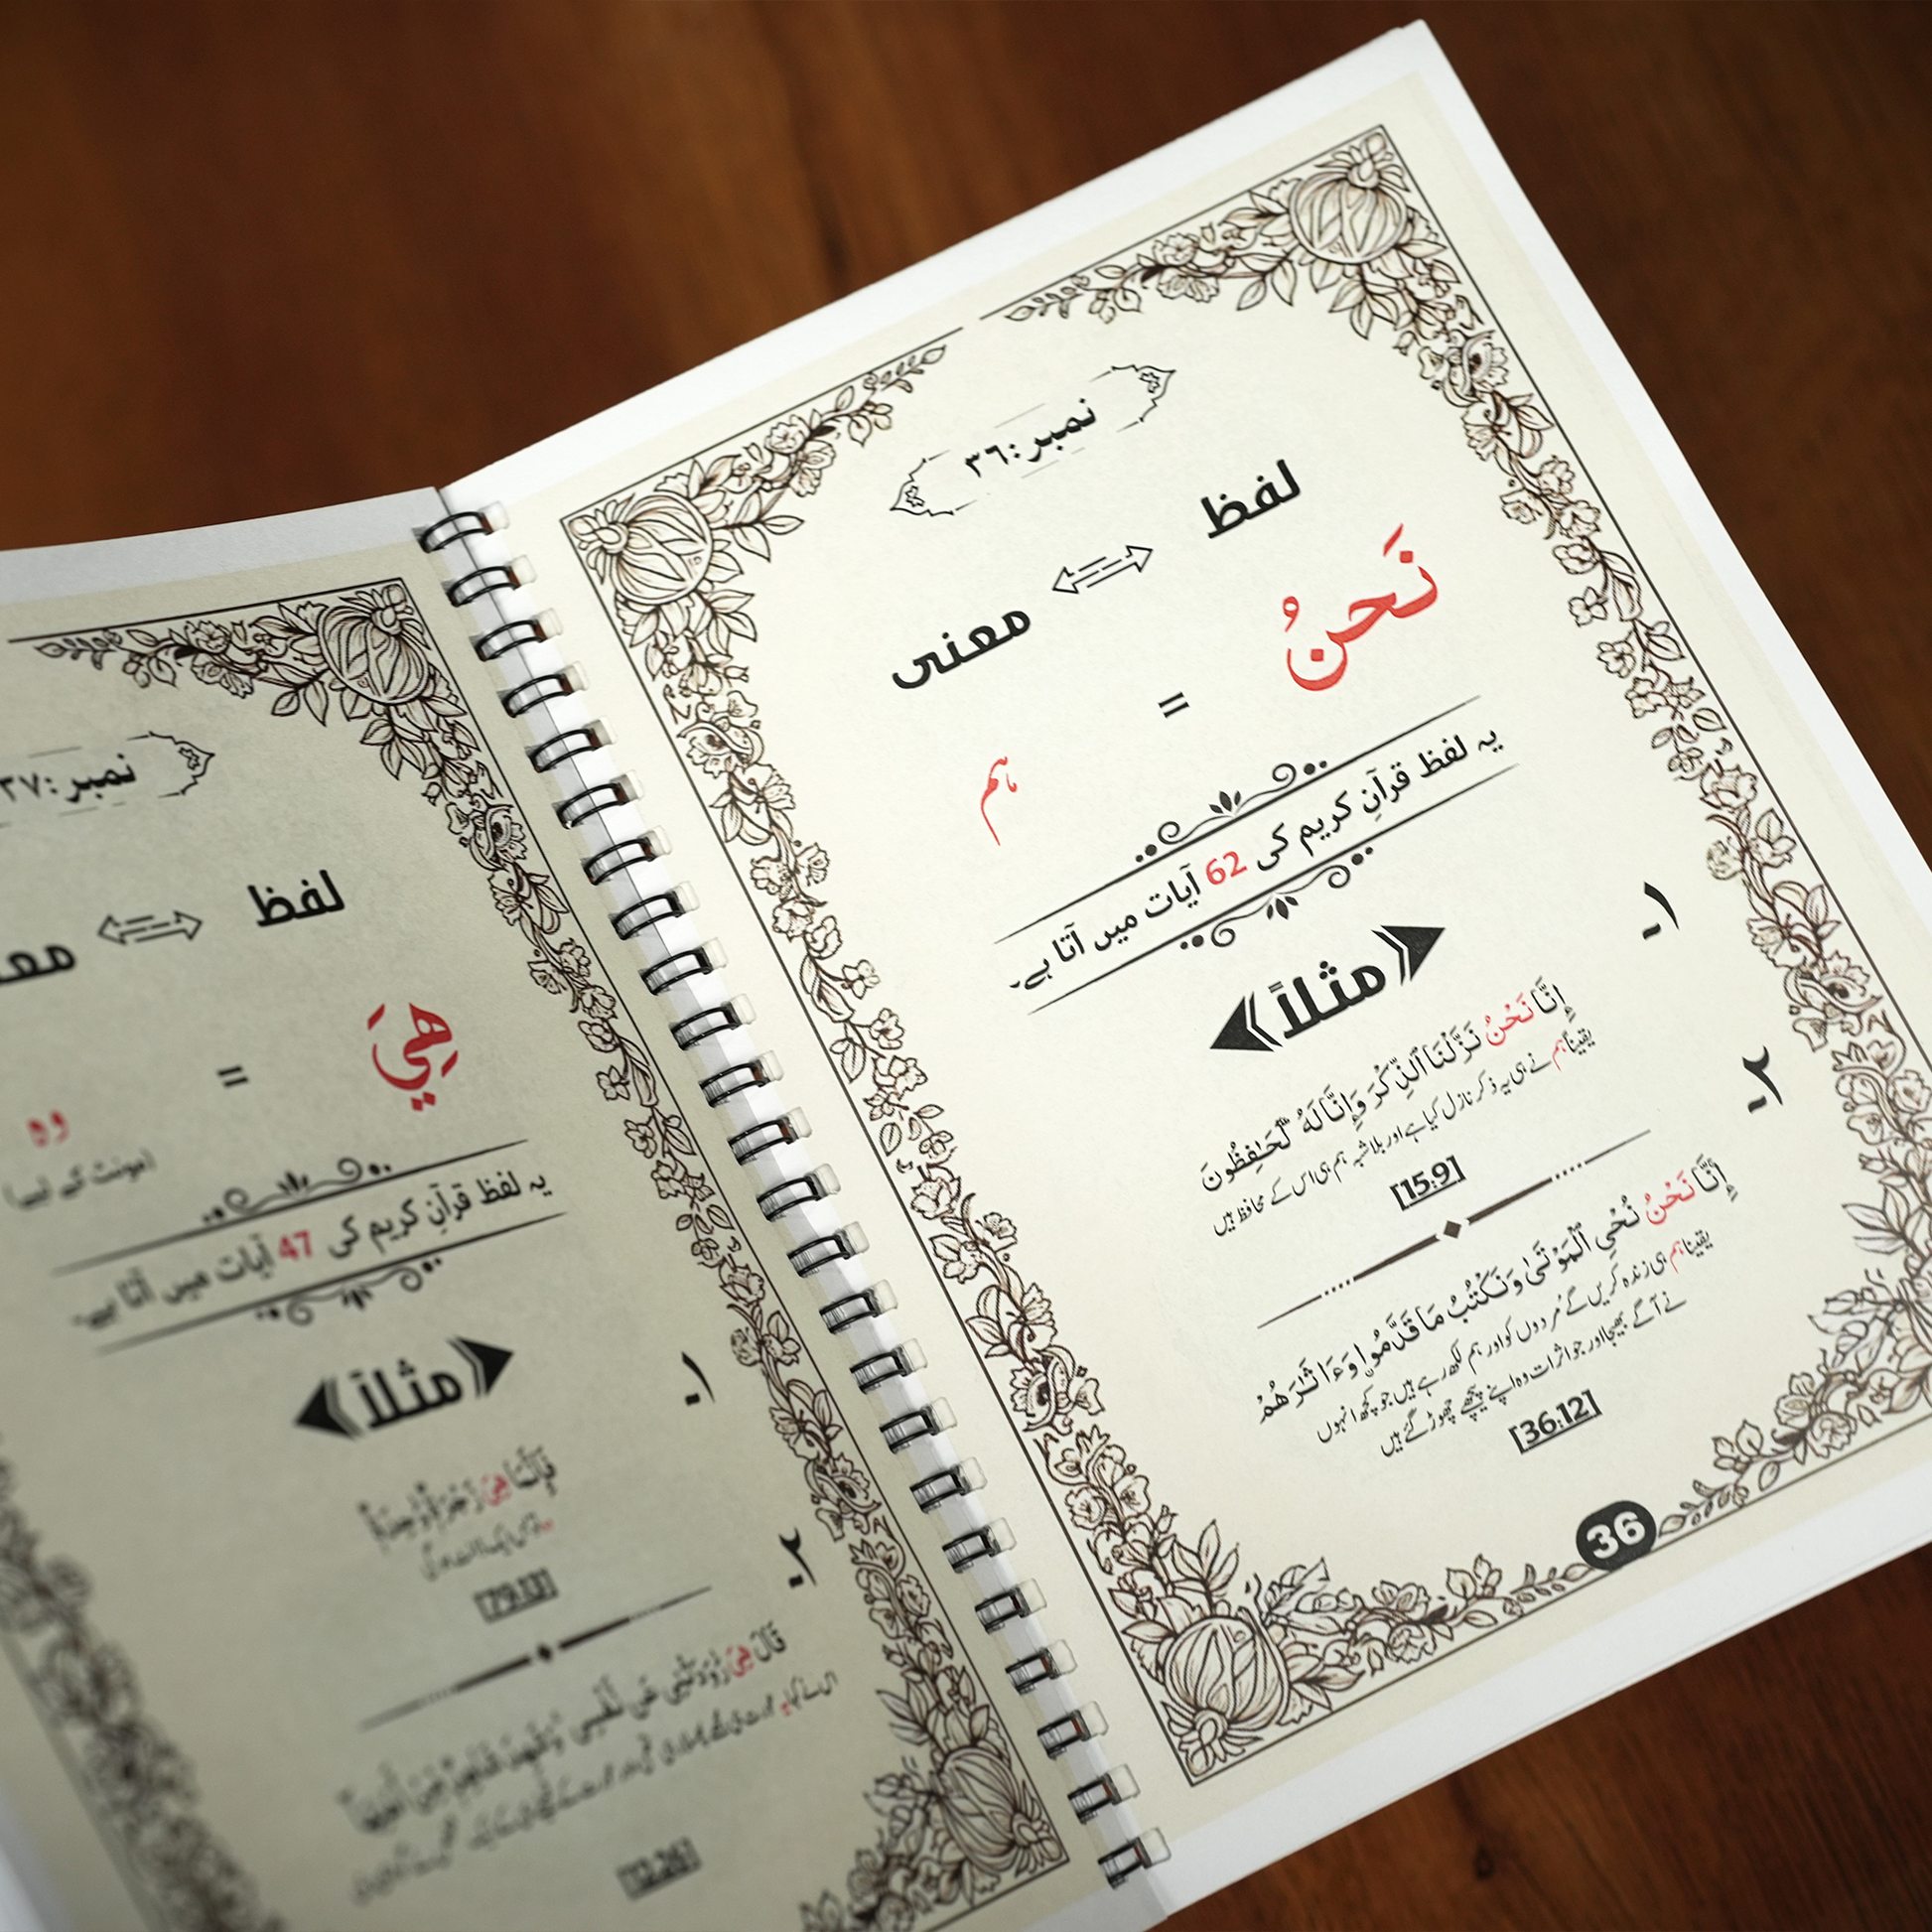 نمبر:۳٦
لفظ
معنی
نَحنُ
=
ہم
یہ لفظ قرآنِ کریم کی 62 آیات میں آتا ہے۔
مثلاً
۱-
إِنَّا نَحْنُ نَزَّلْنَا ٱلذِّكْرَ وَإِنَّا لَهُۥ لَحَـٰفِظُونَ
یقیناً ہم نے ہی یہ ذکر نازل کیا ہے اور بلاشبہ ہم ہی اس کے محافظ ہیں
[15:9]
۲-
إِنَّا نَحْنُ نُحْىِ ٱلْمَوْتَىٰ وَنَكْتُبُ مَا قَدَّمُوا۟ وَءَاثَـٰرَهُمْ
یقیناً ہم ہی زندہ کریں گے مُردوں کو اور ہم لکھ رہے ہیں جو کچھ انہوں
نے آگے بھیجا اور جو اثرات وہ اپنے پیچھے چھوڑ گئے ہیں
[36:12]
36
نمبر:۳۷
لفظ
هِيَ
=
وہ
(مونث کے لیے)
یہ لفظ قرآنِ کریم کی 47 آیات میں آتا ہے۔
مثلاً
۱-
فَإِنَّمَا هِىَ زَجْرَةٌ وَٰحِدَةٌ
[79:13]
۲-
قَالَ هِىَ رَٰوَدَتْنِى عَن نَّفْسِى وَشَهِدَ شَاهِدٌ مِّنْ أَهْلِهَآ
[12:26]